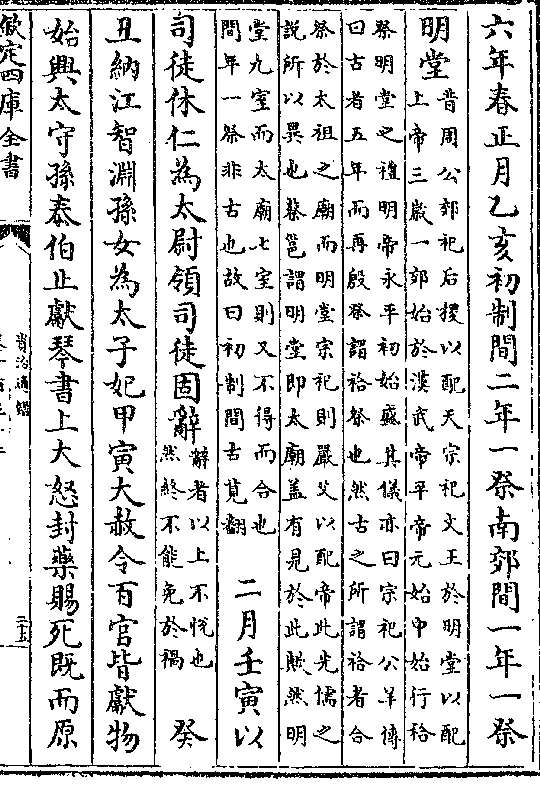 六年春正月乙亥初制間二年一祭南郊間一年一祭
明堂
昔周公郊祀后稷以配天宗祀文王於明堂以配
上帝三歳一郊始於漢武帝平帝元始中始行祫
祭明堂之禮明帝永平初始盛其儀亦曰宗祀公羊傳
曰古者五年而再殷祭謂祫祭也然古之所謂祫者合
祭於太祖之廟而明堂宗祀則嚴父以配帝此先儒之
說所以異也蔡邕謂明堂即太廟盖有見於此歟然明
堂九室而太廟七室則又不得而合也
間年一祭非古也故曰初制間古莧翻
二月壬寅以
司徒休仁為太尉領司徒固辭
辭者以上不悅也
然終不能免於禍
癸
丑納江智淵孫女為太子妃甲寅大赦令百官皆獻物
始興太守孫奉伯止獻琴書上大怒封藥賜死既而原
欽定四庫全書
資治通鑑